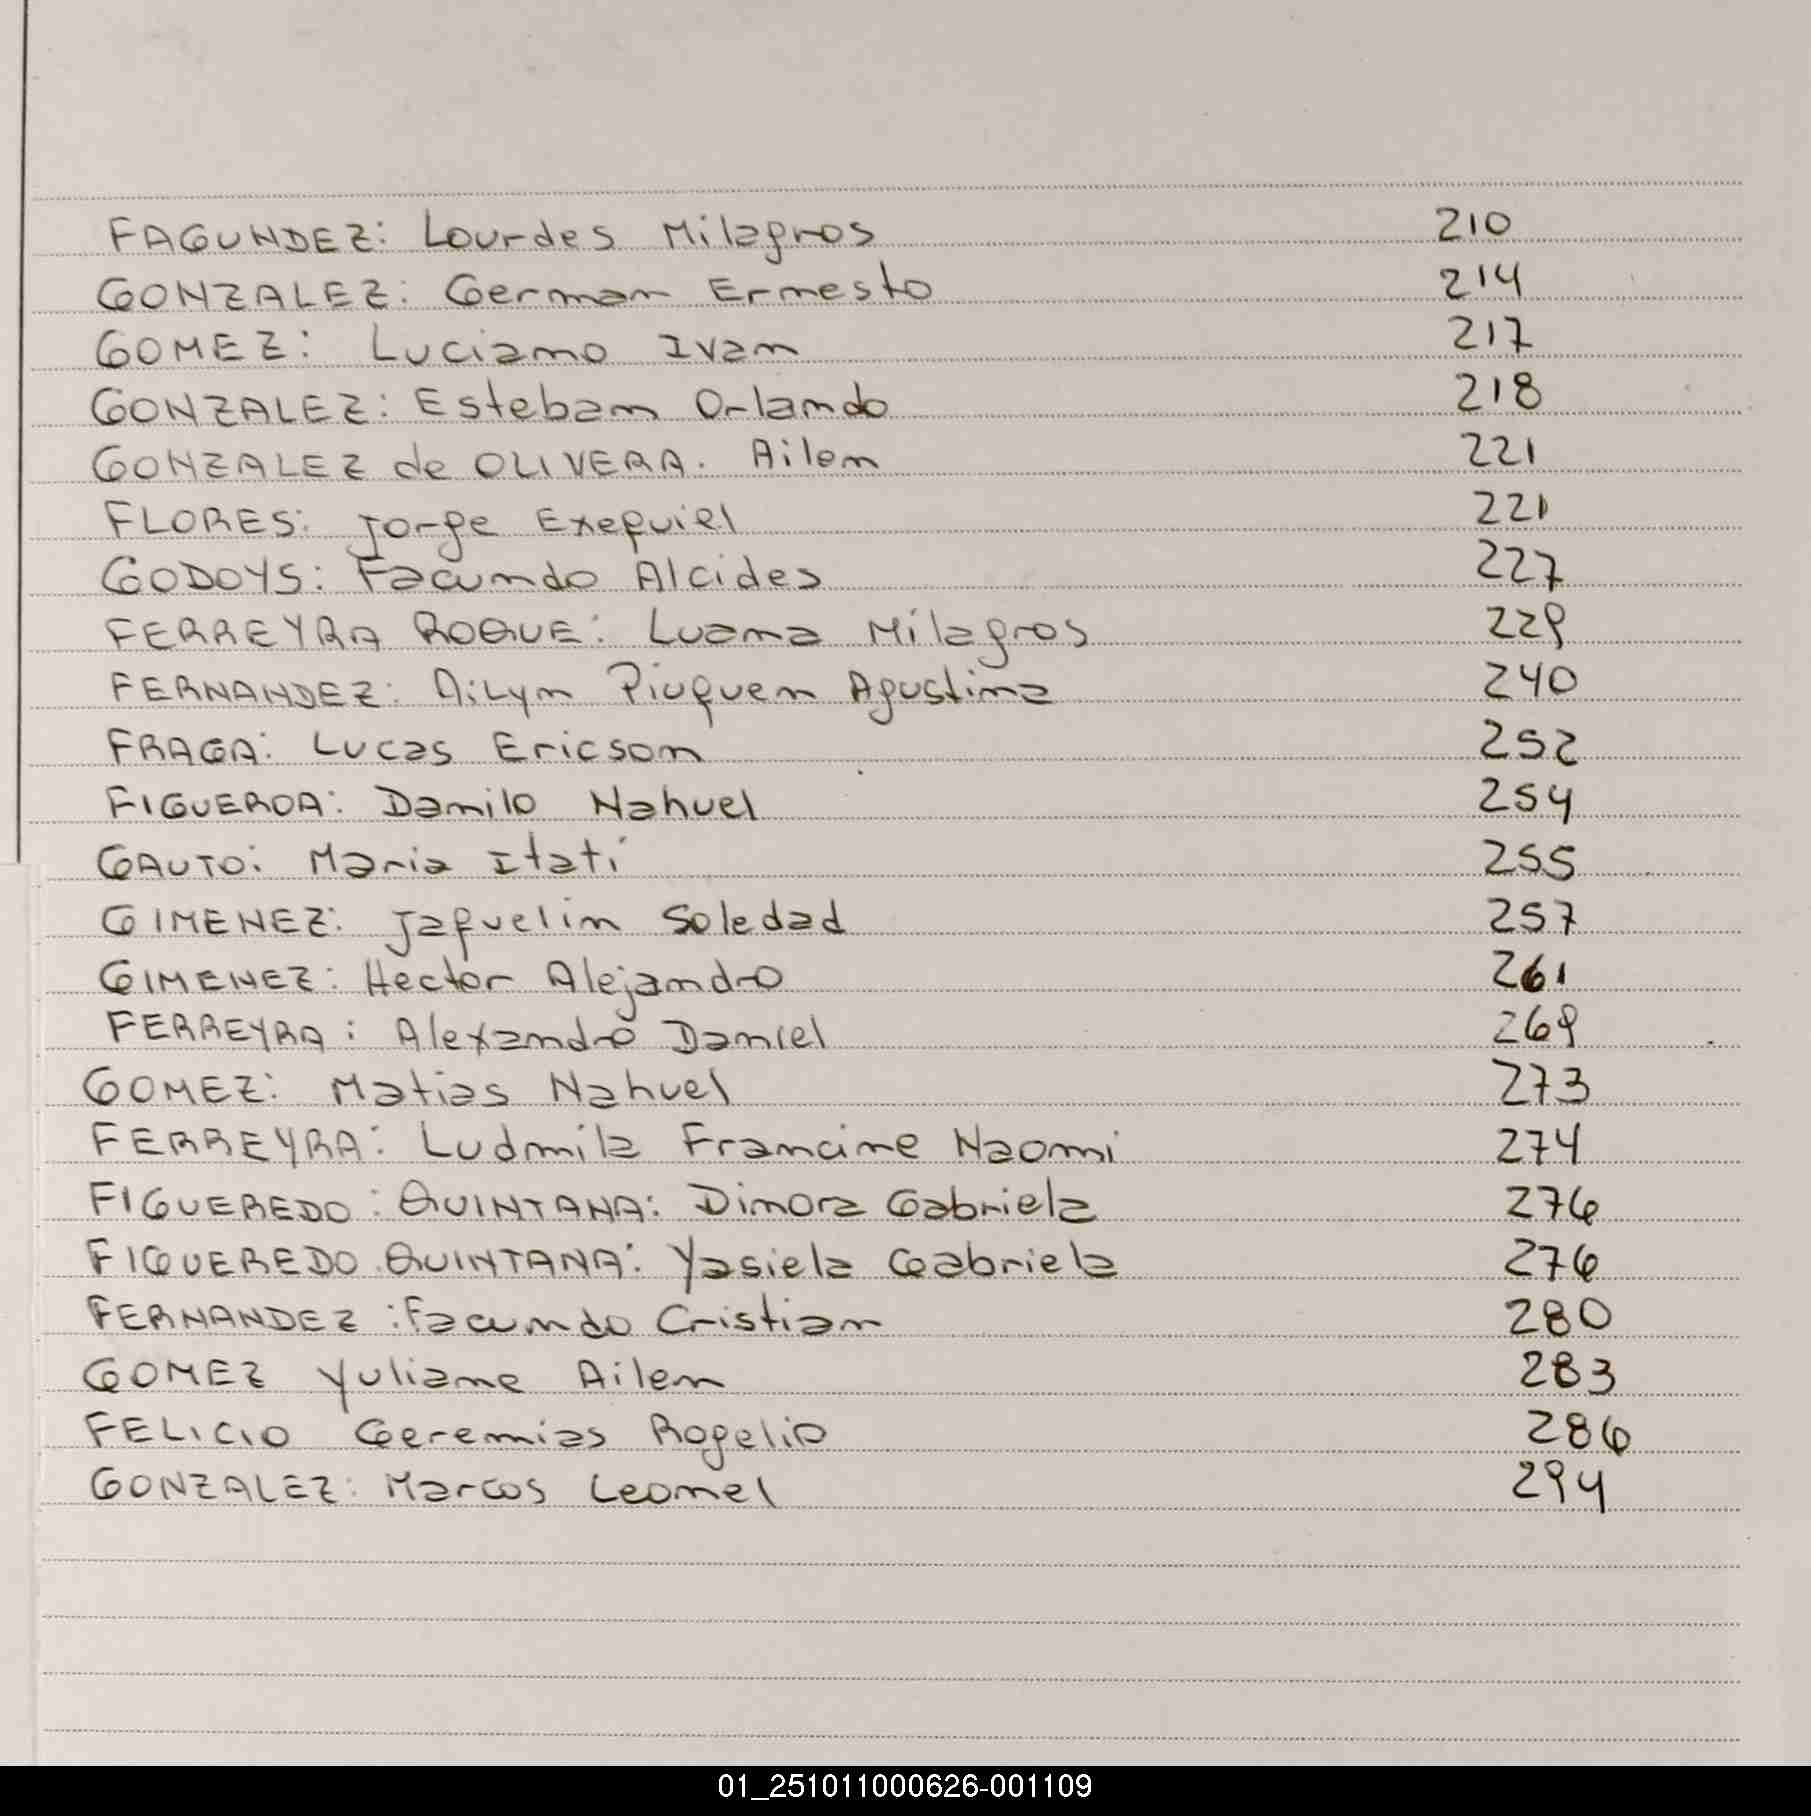 FAGUNDEZ: Lourdes Milagros 210
GONZALEZ: German Ernesto 214
GOMEZ: Luciano Ivan 217
GONZALEZ: Esteban Orlando 218
GONZALEZ de OLIVERA. Ailen 221
FLORES: Jorge Exequiel 221
GODOYS: Facundo Alcides 227
FERREYRA ROQUE: Luana Milagros 229
FERNANDEZ: Ailyn Piuquen Agustina 240
FRAGA: Lucas Ericson 252
FIGUEROA: Danilo Nahuel 254
GAUTO: Maria Itatí 255
GIMENEZ: Jaquelin Soledad 257
GIMENEZ: Hector Alejandro 261
FERREYRA: Alexandro Daniel 269
GOMEZ: Matias Nahuel 273
FERREYRA: Ludmila Francine Naomi 274
FIGUEREDO: QUINTANA: Dinora Gabriela 276
FIGUEREDO QUINTANA: Yasiela Gabriela 276
FERNANDEZ: Facundo Cristian 280
GOMEZ Yuliane Ailen 283
FELICIO Geremias Rogelio 286
GONZALEZ: Marcos Leonel 294
01_251011000626-001109